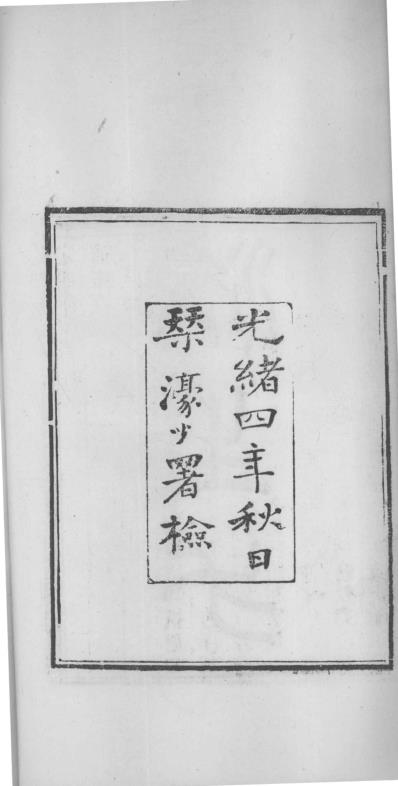 光緒四年秋日
琹濠少署檢